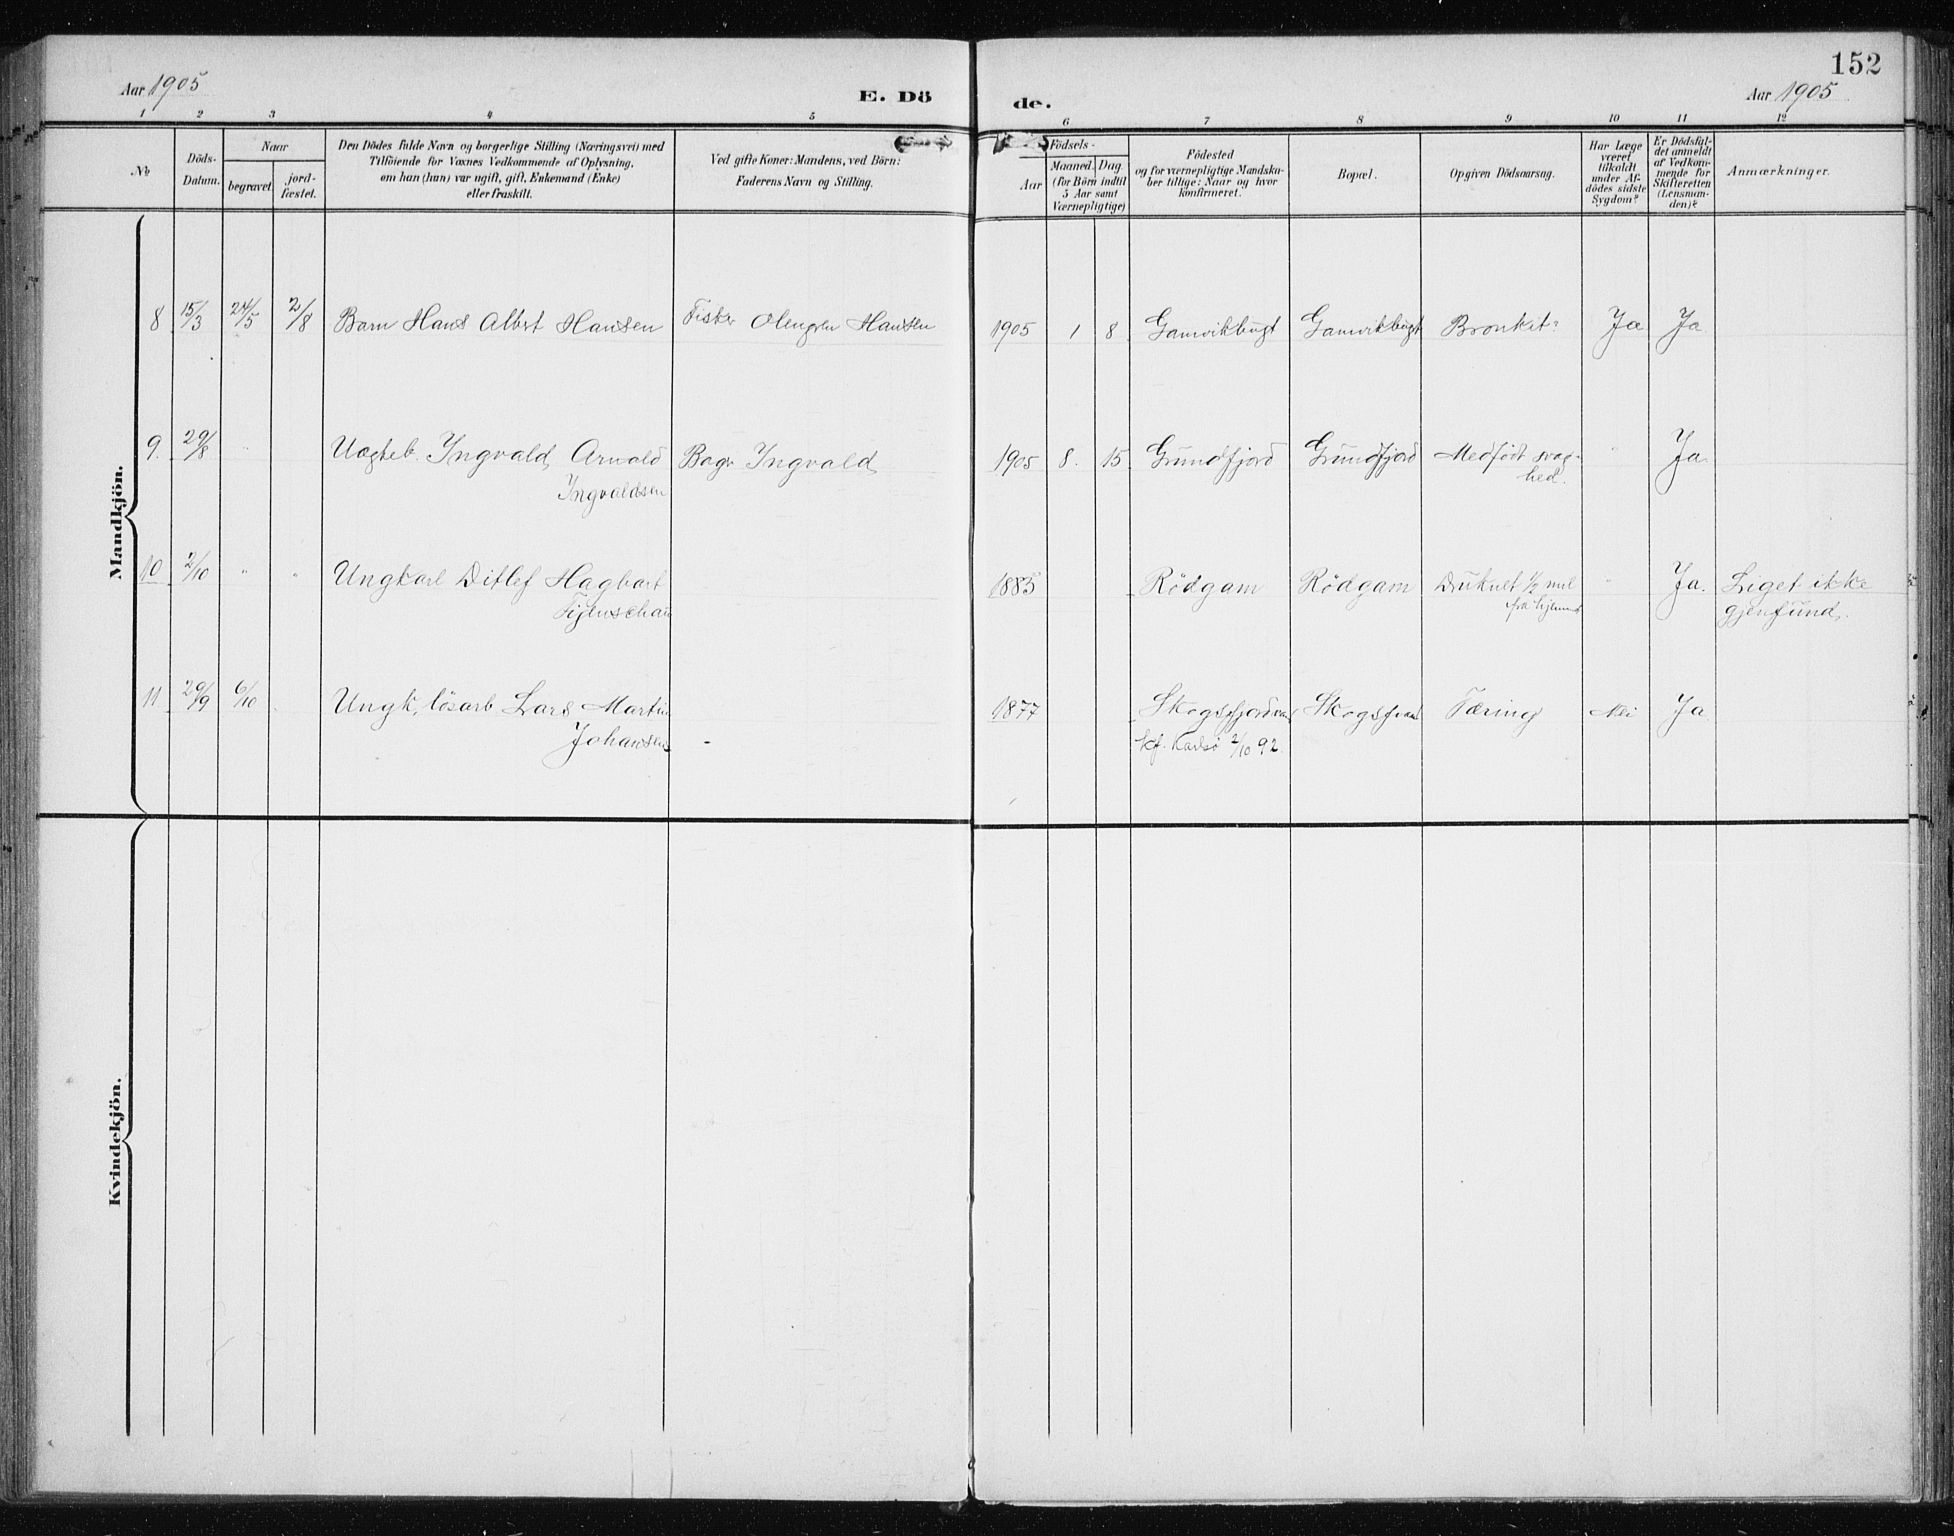 152
Aar 1905
E. Dö
de.
Aar 1905
1 2 3 4 5 6 7 8 9 10 11 12
No
Döds-
Datum.
Naar
begravet.
jord-
fæstet.
Den Dödes fulde Navn og borgerlige Stilling (Næringsvei) med
Tilföiende for Voxnes Vedkommende af Oplysning,
om han (hun) var ugift, gift, Enkemand (Enke)
eller fraskilt.
Ved gifte Koner: Mandens, ved Börn:
Faderens Navn og Stilling.
Födsels-
Aar
Maaned. Dag.
(for Börn indtil
5 Aar samt
Værnepligtige)
Födested
og for værnepligtige Mandska-
ber tillige: Naar og hvor
konfirmeret.
Bopæl.
Opgiven Dödsaarsag.
Har Læge
været
tilkaldt
under Af-
dödes sidste
Sygdom?
Er Dödsfal-
det anmeldt
af Vedkom-
mende for
Skifteretten
(Lensman-
den)?
Anmærkninger.
Mandkjön.
8 15/3 24/5 2/8 Barn Hans Albert Hansen Fisker Hansen 1905 1 8 Gamvikbugt Gamvikbugt Bronkit Ja Ja
9. 29/8 " Uægteb. Ingvald Arnold Ingvald 1905 8. 15 Grundfjord Grundfjord Medfödt svag- " Ja.
Ingvaldsen hed.
10 2/10 " " Ungkarl Ditlef Hagbart 1883 Rødgam Rødgam Druknet 1/2 mil " Ja. Liget ikke
fra hjemmet gjenfund.
11 29/9 6/10 Ungk, løsarb Lars Martin 1877 Tæring Nei Ja
Johansen - kf. Karlsø 2/10 92.
Kvindekjön.